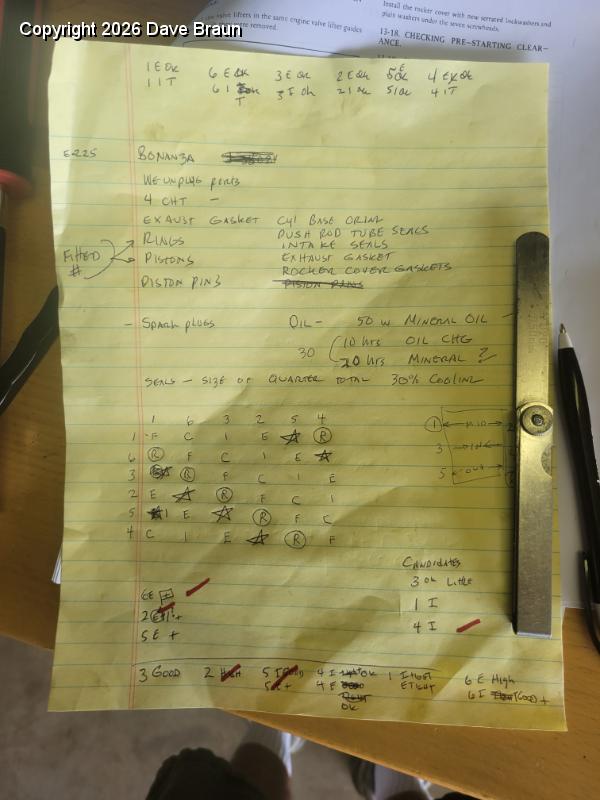 Copyright 2026 Dave Braun
valve lifters in the same engine valve lifter guides
were removed.
Install the rocker cover with new serrated lockwashers and
plain washers under the seven screwheads.
13-18. CHECKING PRE-STARTING CLEAR-
ANCE.
1 E Ok 6 E Ok 3 E Ok 2 E Ok 5 E Ok 4 E Ok
1 I T 6 I T 3 I Ok 2 I Ok 5 I Ok 4 I T
E-225 BONANZA
WE UNPLUG PORTS
4 CHT -
EXAUST GASKET CYL BASE ORING
PUSH ROD TUBE SEALS
RINGS INTAKE SEALS
FITTED # PISTONS EXHAUST GASKET
ROCKER COVER GASKETS
PISTON PINS PISTON PINS
- SPARK PLUGS OIL - 50 W MINERAL OIL -
30 10 hrs OIL CHG
20 hrs MINERAL ?
SEALS - SIZE OF QUARTER TOTAL 30% COOLING
1 6 3 2 5 4
1 F C I E ☆ R
6 R F C I E ☆
3 ☆ R F C I E
2 E ☆ R F C I
5 I E ☆ R F C
4 C I E ☆ R F
1 MID 2
3 IN
5 OUT
CANDIDATES
3 Ok Little
1 I
4 I
6E +
2 E +
5 E +
3 GOOD 2 High 5 I Good 4 I OK 1 I TIGHT 6 E High
5 E + 4 E OK E TIGHT 6 I (Good) +